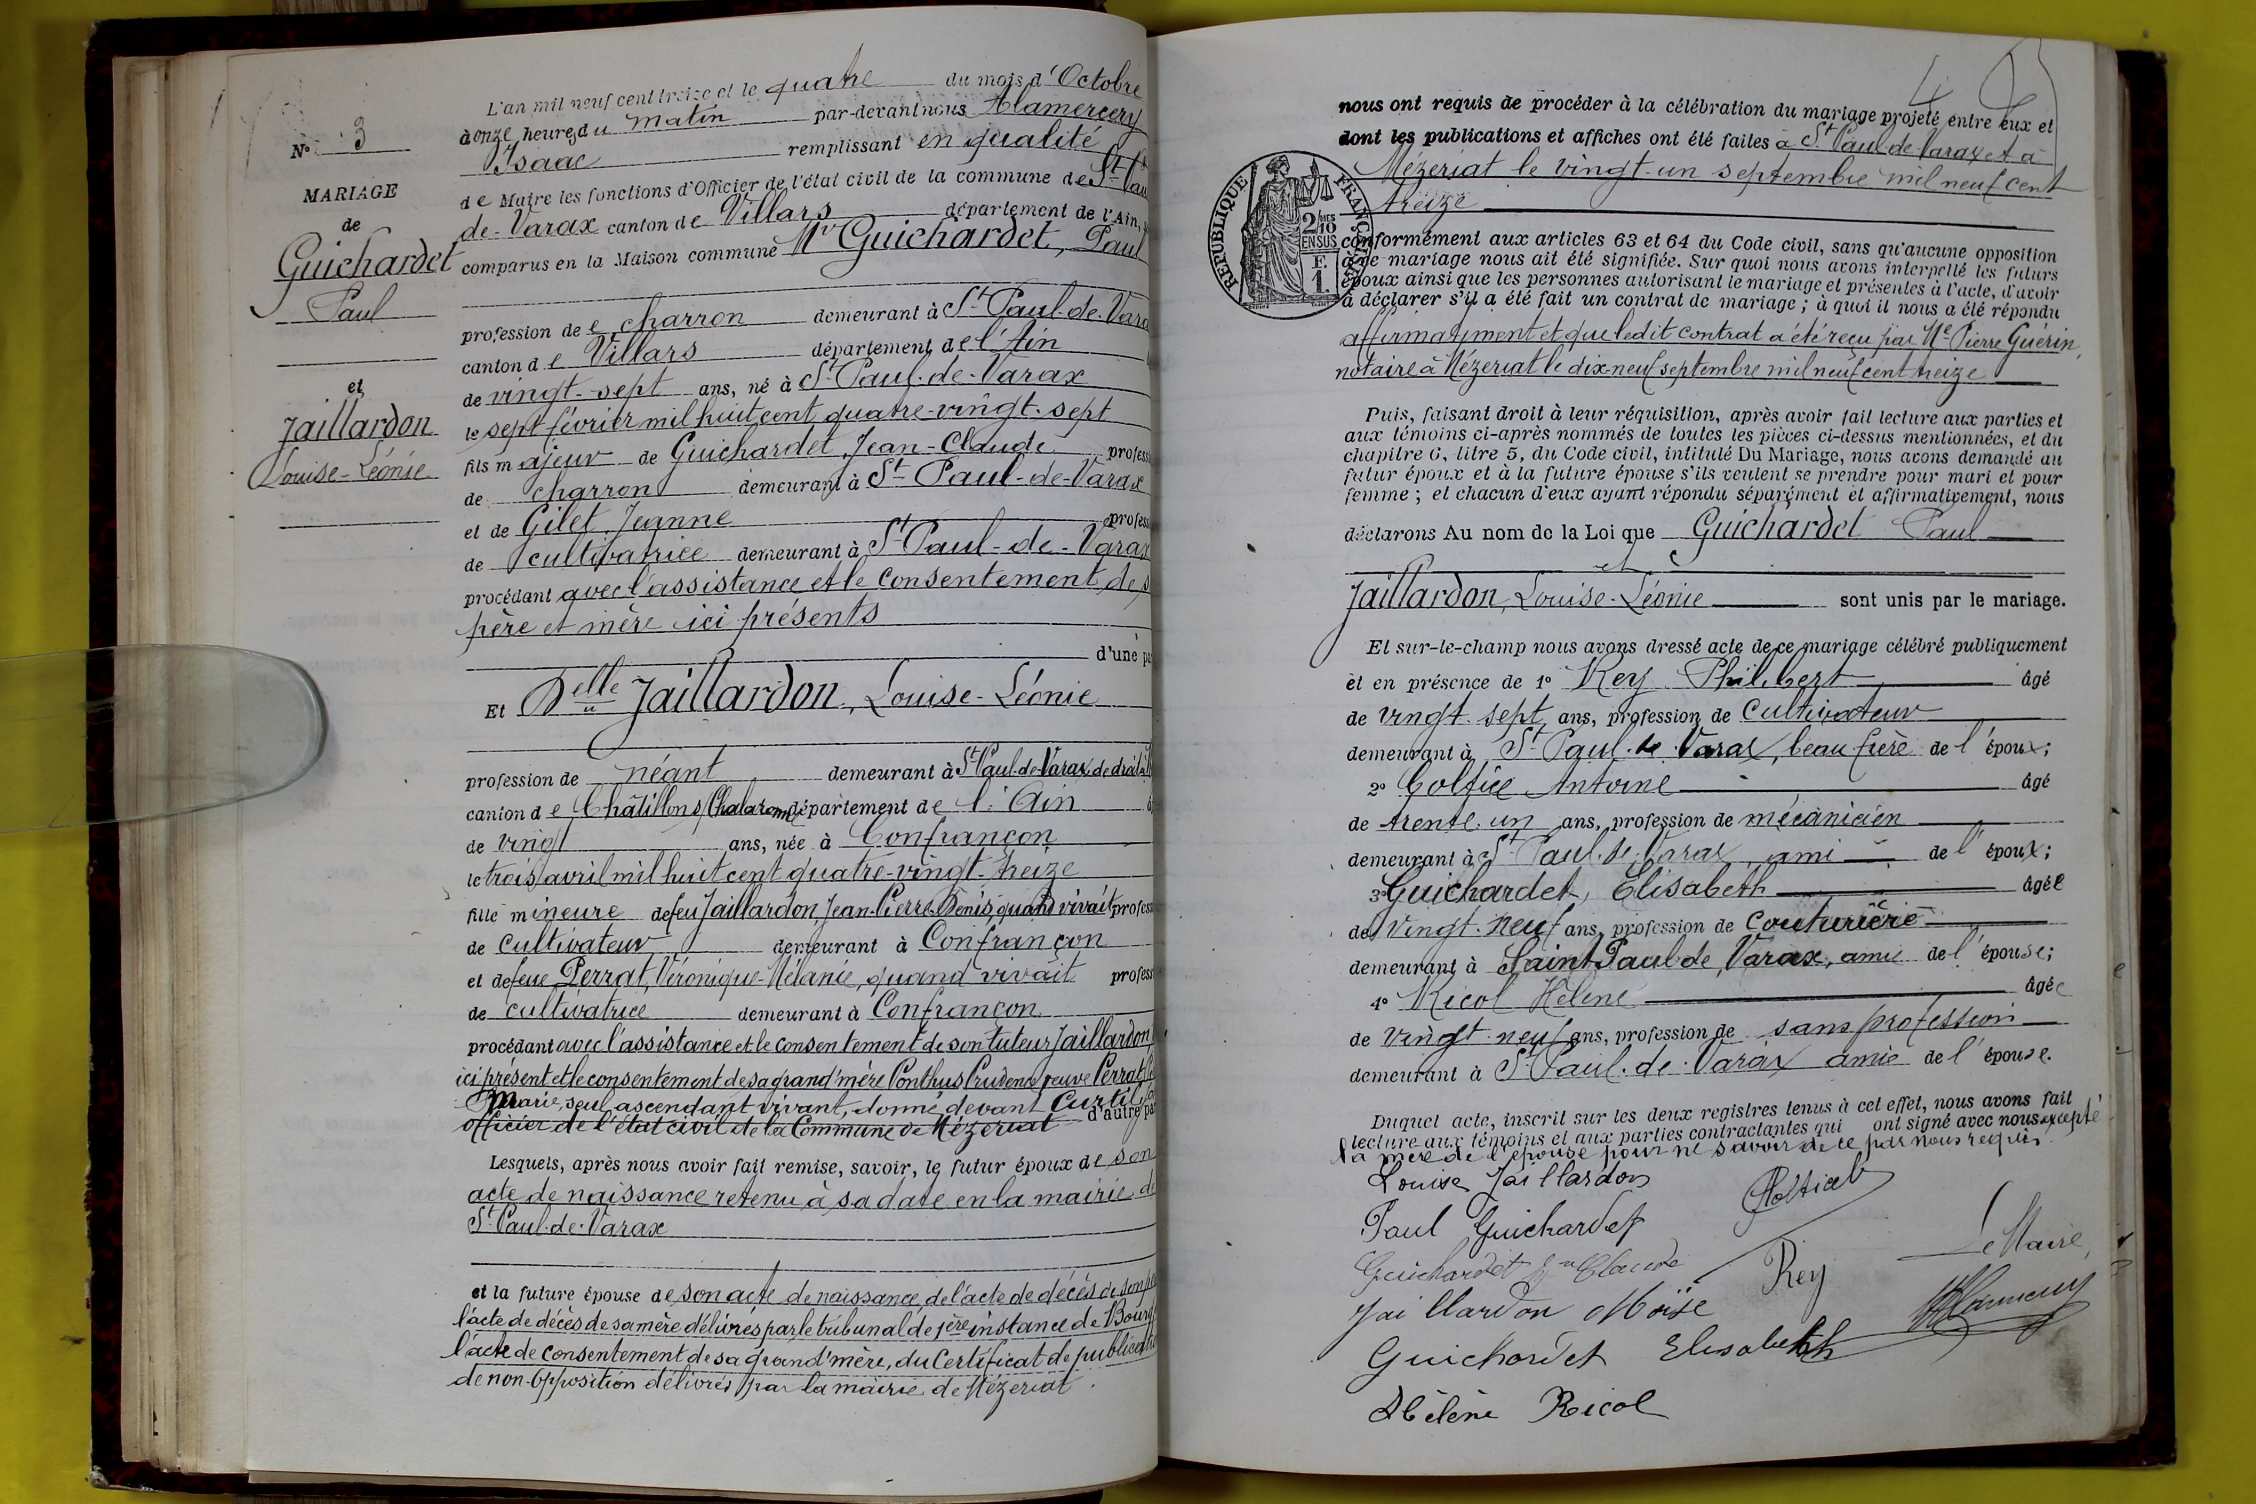 N° 3
MARIAGE
de
Guichardet
Paul
et
Jaillardon
Louise-Léonie
L'an mil neuf cent treize et le quatre du mois d'Octobre
à onze heures du matin par-devant nous Alamercery
Isaac remplissant en qualité
de Maire les fonctions d'Officier de l'état civil de la commune de St Paul
de-Varax canton de Villars département de l'Ain,
comparus en la Maison commune Mr Guichardet, Paul
profession de charron demeurant à St Paul-de-Vara
canton de Villars département de l'Ain
de vingt-sept ans, né à St Paul-de-Varax
le sept février mil huit cent quatre-vingt-sept
fils majeur de Guichardet, Jean-Claude profess
de charron demeurant à St Paul-de-Varax
et de Gilet, Jeanne profess
de cultivatrice demeurant à St Paul-de-Varax
procédant avec l'assistance et le consentement de s
père et mère ici présents
d'une pa
Et Delle Jaillardon, Louise-Léonie
profession de néant demeurant à St Paul-de-Varax, de droit à
canton de Châtillon s/Chalaronne département de l'Ain
de vingt ans, née à Confrançon
le trois avril mil huit cent quatre-vingt-treize
fille mineure de feu Jaillardon Jean-Pierre-Denis, quand vivait profess
de cultivateur demeurant à Confrançon
et de feue Perrat, Véronique-Mélanie, quand vivait profess
de cultivatrice demeurant à Confrançon
procédant avec l'assistance et le consentement de son tuteur Jaillardon
ici présent et le consentement de sa grand'mère Ponthus Prudence veuve Perrat
Marie, seul ascendant vivant, donné devant Curtil
officier de l'état civil de la Commune de Mézeriat d'autre pa
Lesquels, après nous avoir fait remise, savoir, le futur époux de son
acte de naissance retenu à sa date en la mairie de
St Paul-de-Varax
et la future épouse de son acte de naissance, de l'acte de décès de son pè
l'acte de décès de sa mère délivrés par le tribunal de 1ère instance de Bourg
l'acte de consentement de sa grand'mère, du Certificat de publicati
de non-opposition délivrés par la mairie de Mézeriat.
nous ont requis de procéder à la célébration du mariage projeté entre eux et
dont les publications et affiches ont été faites à St Paul-de-Varax et à
Mézeriat le vingt-un septembre mil neuf cent
treize
RÉPUBLIQUE FRANÇAISE
2/10 MES
EN SUS
F.
1.
conformément aux articles 63 et 64 du Code civil, sans qu'aucune opposition
à ce mariage nous ait été signifiée. Sur quoi nous avons interpellé les futurs
époux ainsi que les personnes autorisant le mariage et présentes à l'acte, d'avoir
à déclarer s'il a été fait un contrat de mariage ; à quoi il nous a été répondu
affirmativement et que ledit contrat a été reçu par Me Pierre Guérin,
notaire à Mézeriat le dix-neuf septembre mil neuf cent treize
Puis, faisant droit à leur réquisition, après avoir fait lecture aux parties et
aux témoins ci-après nommés de toutes les pièces ci-dessus mentionnées, et du
chapitre 6, titre 5, du Code civil, intitulé Du Mariage, nous avons demandé au
futur époux et à la future épouse s'ils veulent se prendre pour mari et pour
femme ; et chacun d'eux ayant répondu séparément et affirmativement, nous
déclarons Au nom de la Loi que Guichardet Paul
et
Jaillardon, Louise-Léonie sont unis par le mariage.
Et sur-le-champ nous avons dressé acte de ce mariage célébré publiquement
et en présence de 1° Rey Philibert âgé
de vingt-sept ans, profession de cultivateur
demeurant à St Paul-de-Varax, beau frère de l'époux;
2° Antoine âgé
de trente-un ans, profession de mécanicien
demeurant à St Paul-de-Varax, ami de l'époux;
3° Guichardet, Elisabeth âgée
de vingt-neuf ans, profession de couturière
demeurant à Saint Paul de Varax, amie de l'épouse;
4° Ricol Hélène âgée
de vingt-neuf ans, profession de sans profession
demeurant à St Paul-de-Varax amie de l'épouse.
Duquel acte, inscrit sur les deux registres tenus à cet effet, nous avons fait
lecture aux témoins et aux parties contractantes qui ont signé avec nous excepté
la mère de l'épouse pour ne savoir de ce par nous requis.
Louise Jaillardon
Paul Guichardet
Guichardet Jn Claude
Rey
Le Maire,
Jaillardon Moïse
Guichardet Elisabeth
Hélène Ricol